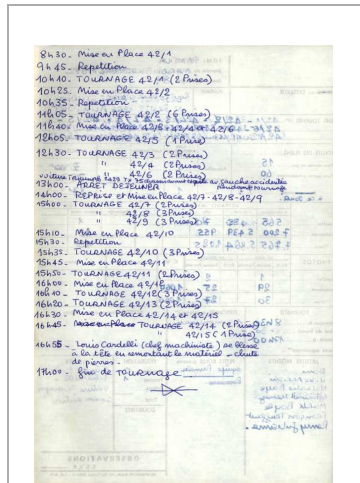 8h30 - Mise en Place 42/1
9h45 - Repetition
10h10 - TOURNAGE 42/1 (2 Prises)
10h25 - Mise en Place 42/2
10h35 - Repetition -
11h05 - TOURNAGE 42/2 (6 Prises)
11h40 - Mise en Place 42/3 - 42/4 et 42/6 -
12h05 - TOURNAGE 42/3 (1 Prise)
12h30 - TOURNAGE 42/3 (2 Prises)
" 42/4 (2 Prises)
" 42/6 (2 Prises)
voiture Peugeot gauche accidentée pendant tournage
13h00 - ARRET DEJEUNER
14h00 - REPrise et Mise en Place 42/7 - 42/8 - 42/9
15h00 - TOURNAGE 42/7 (2 Prises)
" 42/8 (3 Prises)
" 42/9 (3 Prises)
15h10 - Mise en Place 42/10
15h30 - Repetition
15h35 - TOURNAGE 42/10 (3 Prises)
15h45 - Mise en Place 42/11
15h50 - TOURNAGE 42/11 (2 Prises)
16h00 - Mise en Place 42/12
16h10 - TOURNAGE 42/12 (3 Prises)
16h20 - TOURNAGE 42/13 (2 Prises)
16h30 - Mise en Place 42/14 et 42/15
16h45 - TOURNAGE 42/14 (2 Prises)
" 42/15 (1 Prise)
16h55 - Louis Cardelli (chef machiniste) se blesse
à la tête en remontant le matériel - chute
de pierres -
17h00 - fin de TOURNAGE